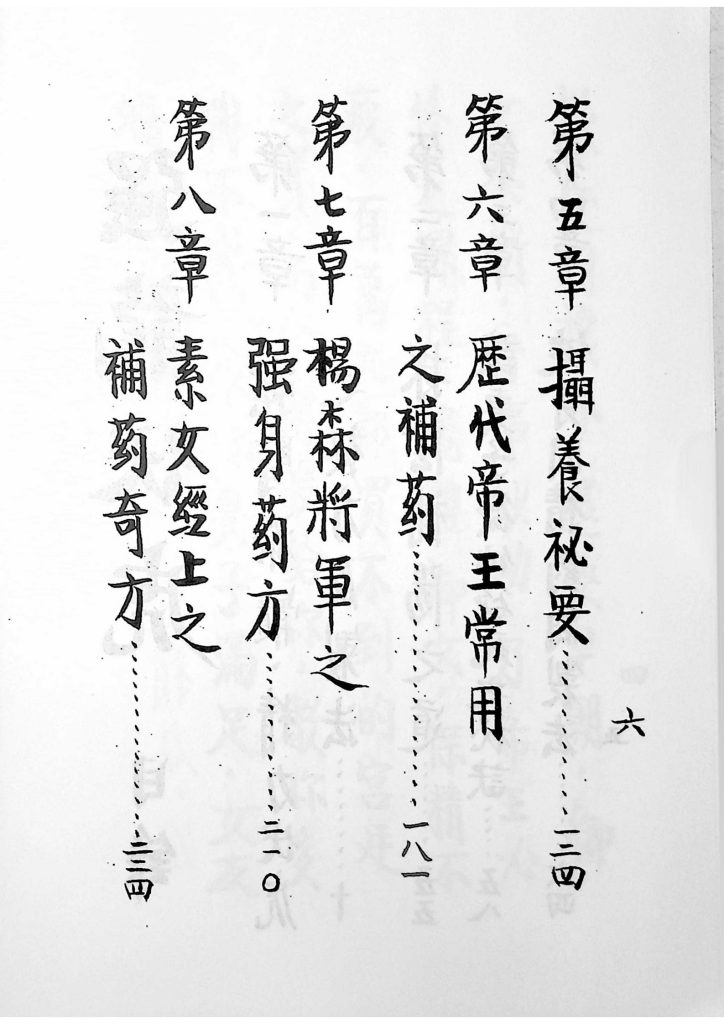 第五章　攝養祕要…………一三四
第六章　歷代帝王常用
之補药…………一八一
第七章　楊森將軍之
强身药方…………二一〇
第八章　素女經上之
補药奇方…………二三四
六